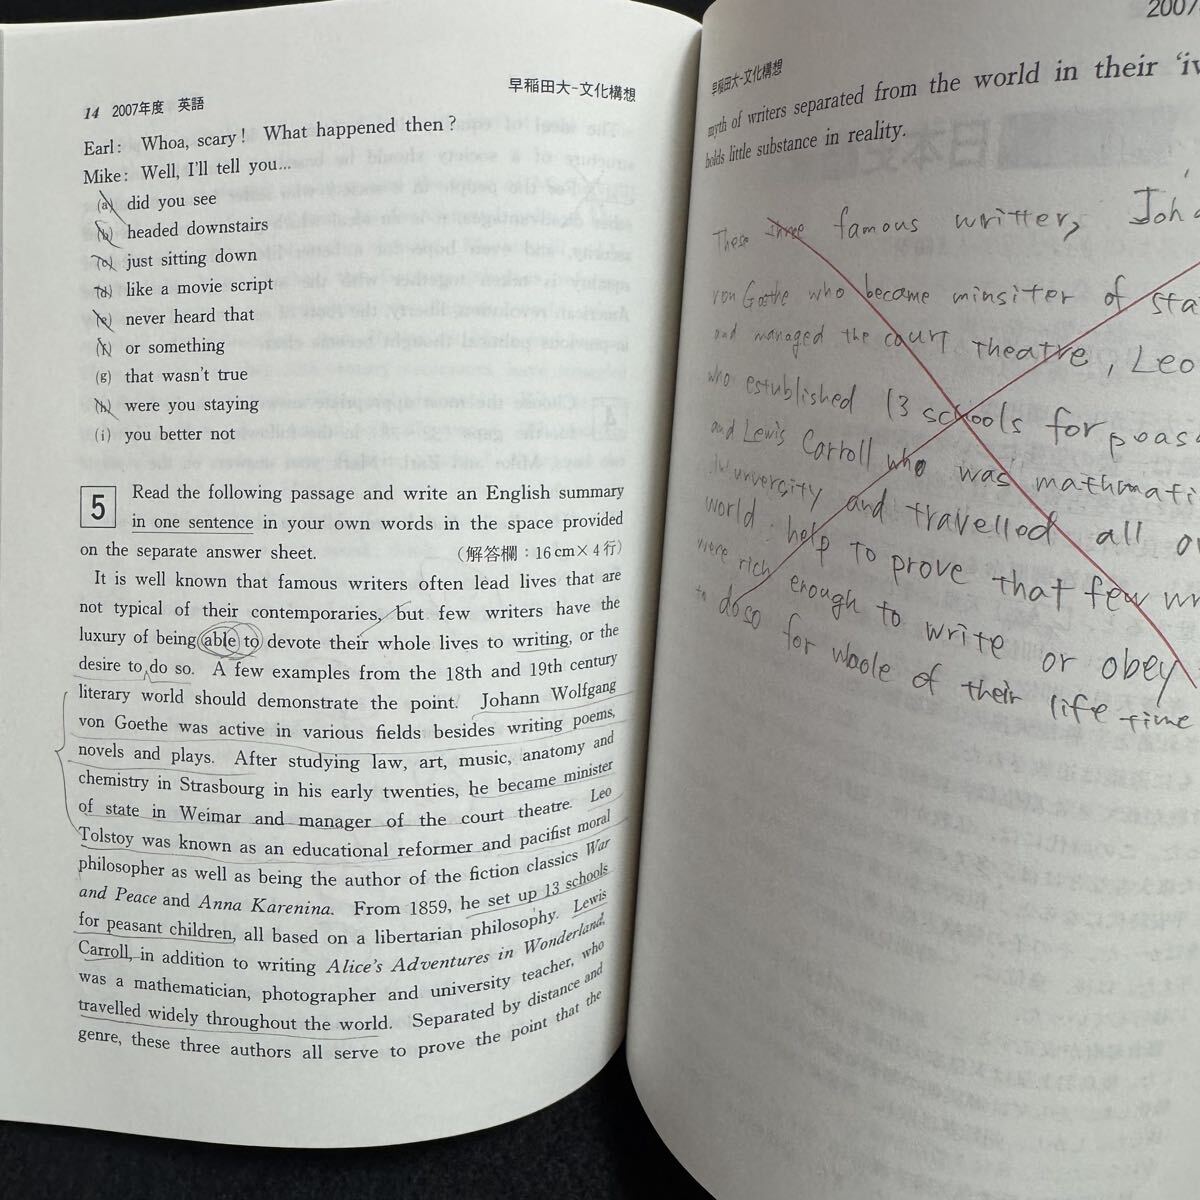 14 2007年度 英語
早稲田大-文化構想
Earl: Whoa, scary! What happened then?
Mike: Well, I'll tell you...
(a) did you see
(b) headed downstairs
(c) just sitting down
(d) like a movie script
(e) never heard that
(f) or something
(g) that wasn't true
(h) were you staying
(i) you better not
5 Read the following passage and write an English summary
in one sentence in your own words in the space provided
on the separate answer sheet. (解答欄:16cm×4行)
It is well known that famous writers often lead lives that are
not typical of their contemporaries, but few writers have the
luxury of being able to devote their whole lives to writing, or the
desire to do so. A few examples from the 18th and 19th century
literary world should demonstrate the point. Johann Wolfgang
von Goethe was active in various fields besides writing poems,
novels and plays. After studying law, art, music, anatomy and
chemistry in Strasbourg in his early twenties, he became minister
of state in Weimar and manager of the court theatre. Leo
Tolstoy was known as an educational reformer and pacifist moral
philosopher as well as being the author of the fiction classics War
and Peace and Anna Karenina. From 1859, he set up 13 schools
for peasant children, all based on a libertarian philosophy. Lewis
Carroll, in addition to writing Alice's Adventures in Wonderland,
was a mathematician, photographer and university teacher, who
travelled widely throughout the world. Separated by distance and
genre, these three authors all serve to prove the point that the
2007
早稲田大-文化構想
myth of writers separated from the world in their 'iv
holds little substance in reality.
These three famous writter, Joha
von Goethe who became minsiter of sta
and managed the court theatre, Leo
who established 13 schools for peas
and Lewis Carroll who was mathmati
in unversity and travelled all o
world help to prove that few wr
were rich enough to write or obey
to do so for whole of their life time